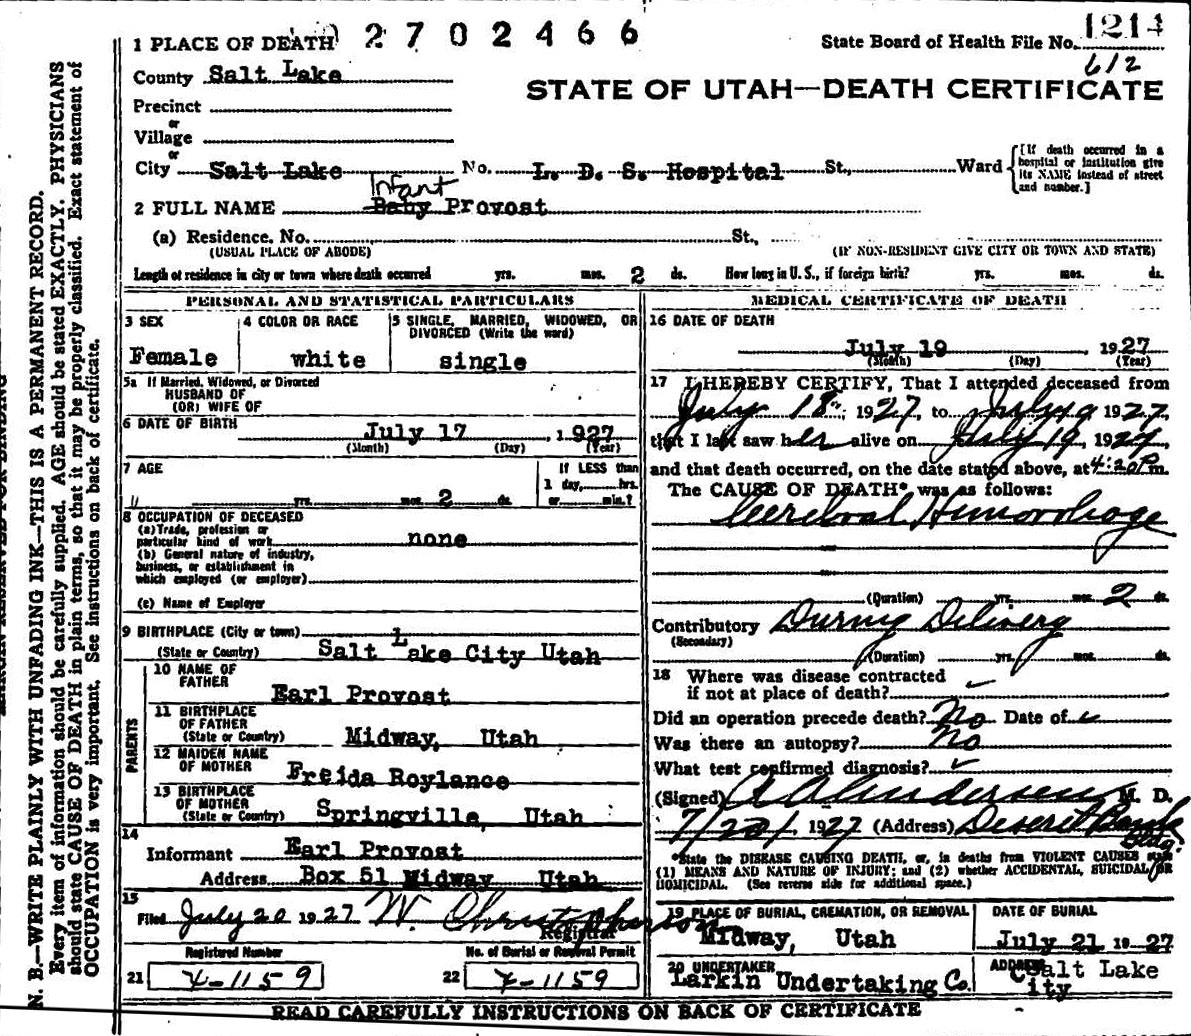 1 PLACE OF DEATH 2702466
State Board of Health File No. 1214
612
County Salt Lake
STATE OF UTAH—DEATH CERTIFICATE
Precinct
or
Village
or
City Salt Lake No. L. D. S. Hospital St., Ward
[If death occurred in a hospital or institution give its NAME instead of street and number.]
Infant
2 FULL NAME Baby Provost
(a) Residence. No. St.,
(USUAL PLACE OF ABODE) (IF NON-RESIDENT GIVE CITY OR TOWN AND STATE)
Length of residence in city or town where death occurred yrs. mos. 2 ds. How long in U. S., if foreign birth? yrs. mos. ds.
PERSONAL AND STATISTICAL PARTICULARS
3 SEX
Female
4 COLOR OR RACE
white
5 SINGLE, MARRIED, WIDOWED, OR
DIVORCED (Write the word)
single
5a If Married, Widowed, or Divorced
HUSBAND OF
(OR) WIFE OF
6 DATE OF BIRTH July 17, 1927
(Month) (Day) (Year)
7 AGE
yrs. mos. 2 ds.
If LESS than
1 day, hrs.
or min.?
8 OCCUPATION OF DECEASED
(a) Trade, profession or
particular kind of work none
(b) General nature of industry,
business, or establishment in
which employed (or employer)
(c) Name of Employer
9 BIRTHPLACE (City or town)
(State or Country) Salt Lake City Utah
PARENTS
10 NAME OF
FATHER
Earl Provost
11 BIRTHPLACE
OF FATHER
(State or Country) Midway, Utah
12 MAIDEN NAME
OF MOTHER
Freida Roylance
13 BIRTHPLACE
OF MOTHER
(State or Country) Springville, Utah
14
Informant Earl Provost
Address Box 51 Midway Utah
15
Filed July 20 1927 W. Christopherson
Registrar
Registered Number No. of Burial or Removal Permit
21 4-1159 22 4-1159
MEDICAL CERTIFICATE OF DEATH
16 DATE OF DEATH
July 19, 1927
(Month) (Day) (Year)
17 I HEREBY CERTIFY, That I attended deceased from
July 18, 1927, to July 19 1927
that I last saw her alive on July 19, 1927
and that death occurred, on the date stated above, at 4:20 P.m.
The CAUSE OF DEATH* was as follows:
Cerebral Hemorrhage
(Duration) yrs. mos. 2 ds.
Contributory During Delivery
(Secondary)
(Duration) yrs. mos. ds.
18 Where was disease contracted
if not at place of death?
Did an operation precede death? No Date of
Was there an autopsy? No
What test confirmed diagnosis?
(Signed) Andersen M. D.
7/20/ 1927 (Address) Deseret Bank
Bldg.
*State the DISEASE CAUSING DEATH, or, in deaths from VIOLENT CAUSES state
(1) MEANS AND NATURE OF INJURY; and (2) whether ACCIDENTAL, SUICIDAL, or
HOMICIDAL. (See reverse side for additional space.)
19 PLACE OF BURIAL, CREMATION, OR REMOVAL
Midway, Utah
DATE OF BURIAL
July 21 1927
20 UNDERTAKER
Larkin Undertaking Co.
ADDRESS
Salt Lake
City
READ CAREFULLY INSTRUCTIONS ON BACK OF CERTIFICATE
N. B.—WRITE PLAINLY WITH UNFADING INK—THIS IS A PERMANENT RECORD.
Every item of information should be carefully supplied. AGE should be stated EXACTLY. PHYSICIANS
should state CAUSE OF DEATH in plain terms, so that it may be properly classified. Exact statement of
OCCUPATION is very important. See instructions on back of certificate.